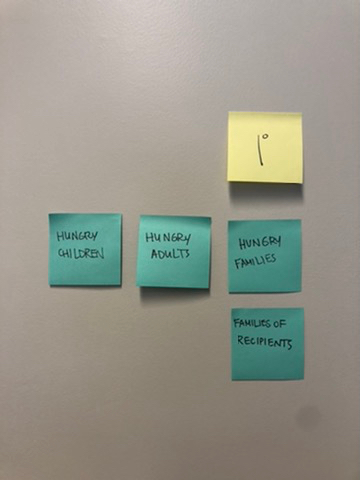 1°
HUNGRY
CHILDREN
HUNGRY
ADULTS
HUNGRY
FAMILIES
FAMILIES OF
RECIPIENTS